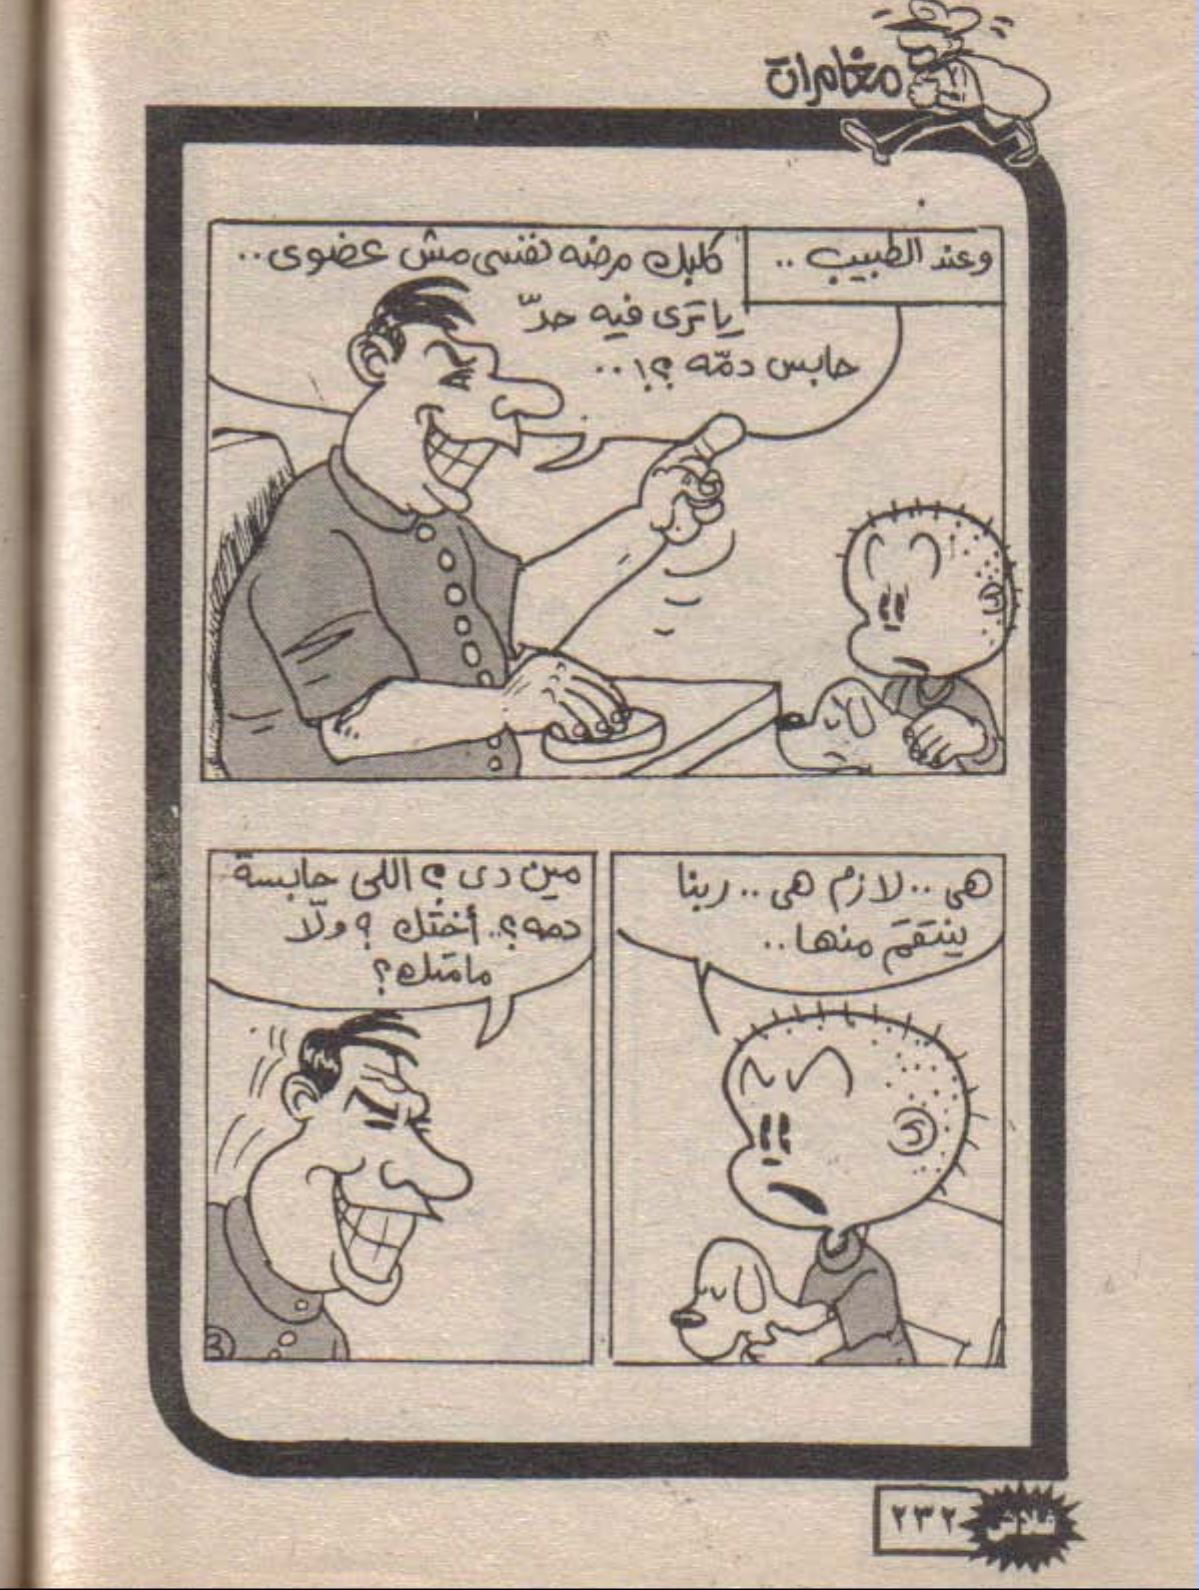 مغامرات
وعند الطبيب ..
كلبك مرضه نفسى مش عضوى ..
يا ترى فيه حدّ
حابس دمّه ؟! ..
هى .. لازم هى .. ربنا
ينتقم منها ..
مين دى ؟ اللى حابسة
دمه ؟.. أختك ؟ ولّا
مامتك ؟
فلاش
٢٣٢